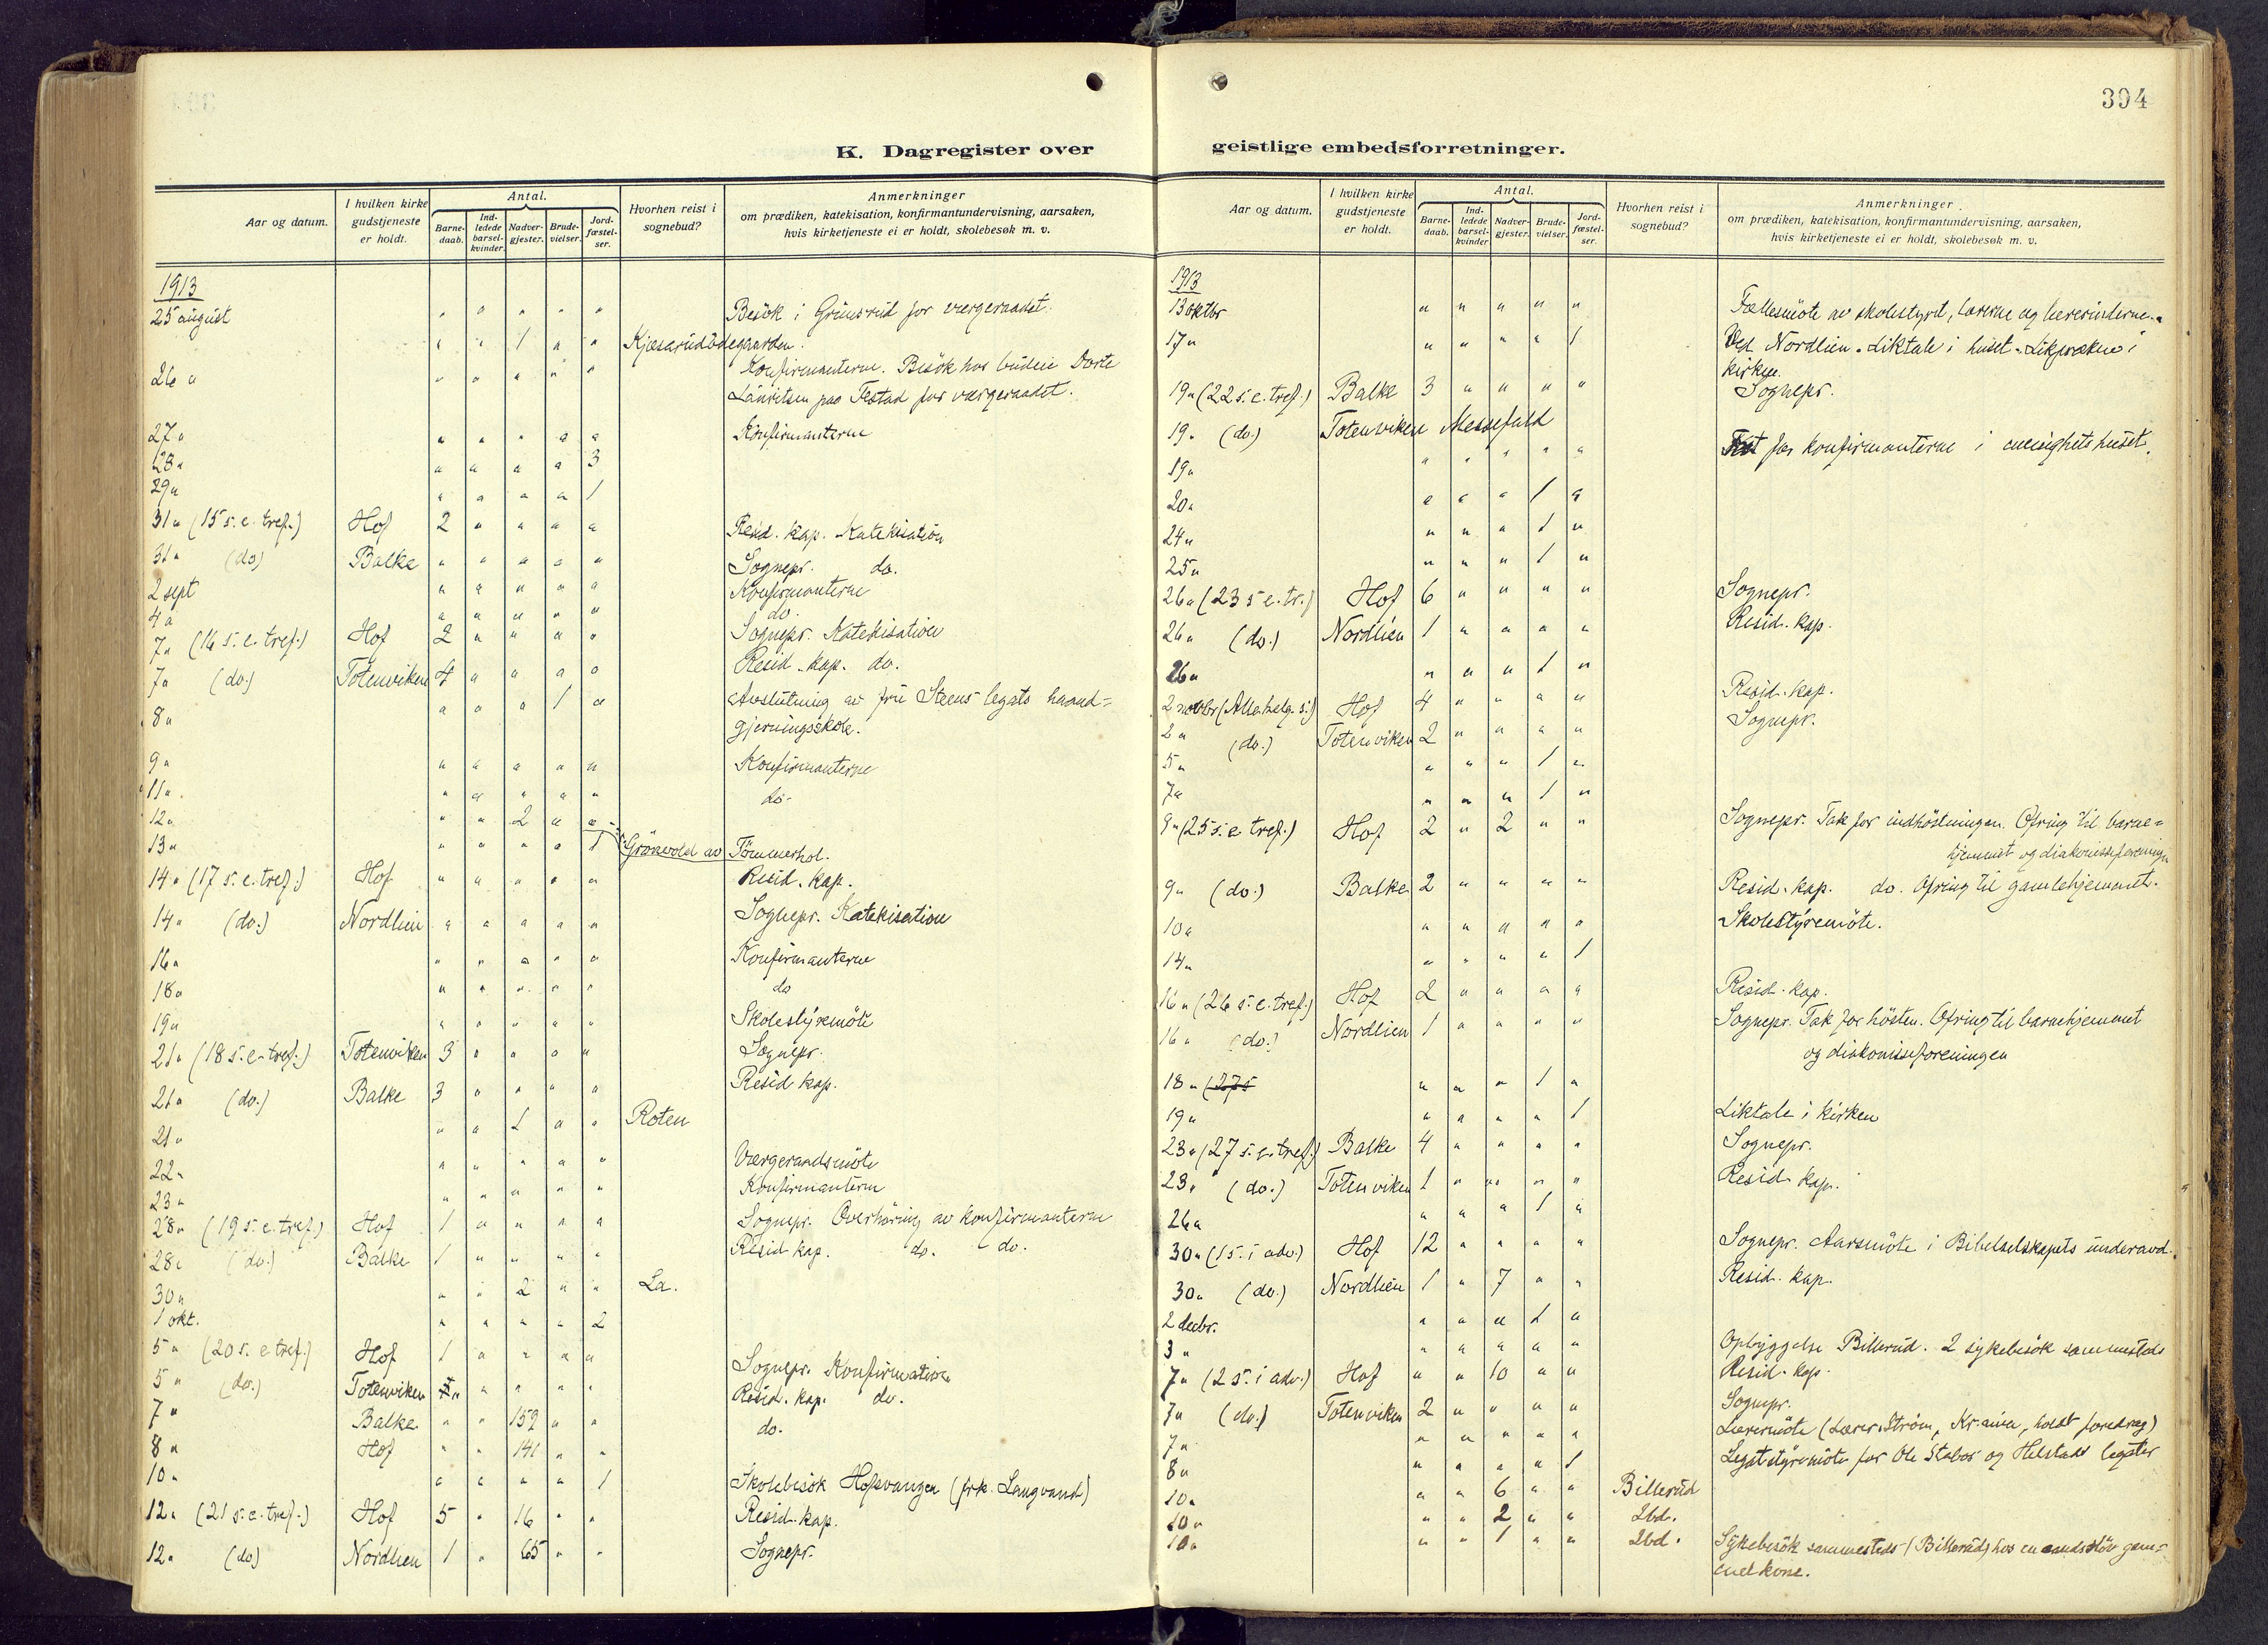 394
K. Dagregister over geistlige embedsforretninger.
Aar og datum. I hvilken kirke gudstjeneste er holdt. Antal. Barne-daab. Ind-ledede barsel-kvinder. Nadver-gjester. Brude-vielser. Jord-fæstel-ser. Hvorhen reist i sognebud? Anmerkninger om prædiken, katekisation, konfirmantundervisning, aarsaken, hvis kirketjeneste ei er holdt, skolebesøk m. v.
1913
25 august " " " " " Besök i Grimsrud for vergeraadet.
" " 1 " " Kjæsarudödegaarden.
26 " " " " " " Konfirmanterne. Besök hos budeie Dorte
Lauritsen paa Testad for vergeraadet.
27 " " " " " " Konfirmanterne
28 " " " " " 3
29 " " " " " 1
31 " (15 s. e. tref.) Hof 2 " " " " Resid. kap. Katekisation
31 " (do) Balke " " " " " Sognepr. do.
2 sept " " " " " Konfirmanterne
4 " " " " " " do.
7 " (16 s. e. tref.) Hof 2 " " " " Sognepr. Katekisation
7 " (do.) Totenviken 4 " " " " Resid. kap. do.
8 " " " " 1 " Avslutning av fru Steens legats haand-
gjerningsskole.
9 " " " " " " Konfirmanterne
11 " " " " " " do-
12 " " " 2 " "
13 " " " " " 1 Grönvold av Tömmerhol.
14 " (17 s. e. tref.) Hof " " " " " Resid. kap.
14 " (do.) Nordlien " " " " " Sognepr. Katekisation
16 " " " " " " Konfirmanterne
18 " " " " " " do
19 " " " " " " Skolestyremöte
21 " (18 s. e. tref.) Totenviken 3 " " " " Sognepr.
21 " (do.) Balke 3 " " " " Resid kap.
21 " " " 1 " " Roten
22 " " " " " " Vergeraadsmöte
23 " " " " " " Konfirmanterne
28 " (19 s. e. tref.) Hof 1 " " " " Sognepr. Overhöring av konfirmanterne
28 " (do.) Balke 1 " " " " Resid kap. do. do.
30 " " " 2 " " La.
1 okt. " " " " 2
5 " (20 s. e tref.) Hof 1 " " " " Sognepr. Konfirmation
5 " (do.) Totenviken " " " " Resid. kap. do.
7 " Balke " " 159 " " do.
8 " Hof " " 141 " "
10 " " " " " 1 Skolebesök Hofsvangen (frk. Langvand)
12 " (21 s. e. tref.) Hof 5 " 16 " " Resid. kap.
12 " (do) Nordlien 1 " 65 " " Sognepr.
Aar og datum. I hvilken kirke gudstjeneste er holdt. Antal. Barne-daab. Ind-ledede barsel-kvinder. Nadver-gjester. Brude-vielser. Jord-fæstel-ser. Hvorhen reist i sognebud? Anmerkninger om prædiken, katekisation, konfirmantundervisning, aarsaken, hvis kirketjeneste ei er holdt, skolebesøk m. v.
1913
13 oktbr " " " " " Fællesmöte av skolestyret, lærerne og lærerinderne.
17 " " " " " 1 Ved Nordlien. Liktale i huset. Likprøken i
kirken.
19 " (22 s. e. tref.) Balke 3 " " " " Sognepr.
19 " (do.) Totenviken Messefald
19 " " " " " " Fest for konfirmanterne i enighetshuset.
20 " " " " 1 "
24 " " " " 1 "
25 " " " " 1 "
26 " (23 s. e. tr.) Hof 6 " " " " Sognepr.
26 " (do.) Nordlien 1 " " " " Resid. kap.
26 " " " " 1 "
2 novbr (Allehelg. s.) Hof 4 " " " " Resid. kap.
2 " (do.) Totenviken 2 " " " " Sognepr.
5 " " " " 1 "
7 " " " " 1 "
9 " (25 s. e tref.) Hof 2 " 2 " " Sognepr. Tak for indhöstningen. Ofring til barne-
hjemmet og diakonisseforeningen
9 " (do.) Balke 2 " " " " Resid. kap. do. Ofring til gamlehjemmet.
10 " " " " " " Skolestyremöte.
14 " " " " " 1
16 " (26 s. e. tref.) Hof 2 " " " " Resid. kap.
16 " (do.) Nordlien 1 " " " " Sognepr. Tak for hösten. Ofring til barnehjemmet
og diakonisseforeningen
18 " (27 s " " " 1 "
19 " " " " " 1 Liktale i kirken
23 " (27 s. e. tref.) Balke 4 " " " " Sognepr.
23 " (do.) Totenviken 1 " " " " Resid. kap.
26 " " " " 1 "
30 " (1 s. i adv.) Hof 12 " " " " Sognepr. Aarsmöte i Bibelselskapets underavd.
30 " (do.) Nordlien 1 " 7 " " Resid. kap.
2 decbr. " " " 1 "
3 " " " " " " Opbyggelse Billerud. 2 sykebesök sammesteds
7 " (2 s. i adv.) Hof " " 10 " " Resid. kap.
7 " (do.) Totenviken 2 " " " " Sognepr.
7 " " " " " " Lærermöte (Lærer Ström, Kr.ania, holdt foredrag)
8 " " " " " 1 Legatstyremöte for Ole Stabos og Helstads legater
10 " " " 6 " " Billerud
10 " " " 2 " " Ibd.
10 " " " 1 " " Ibd. Sykebesök sammesteds (Billerud) hos en aandsslöv gam-
mel kone.